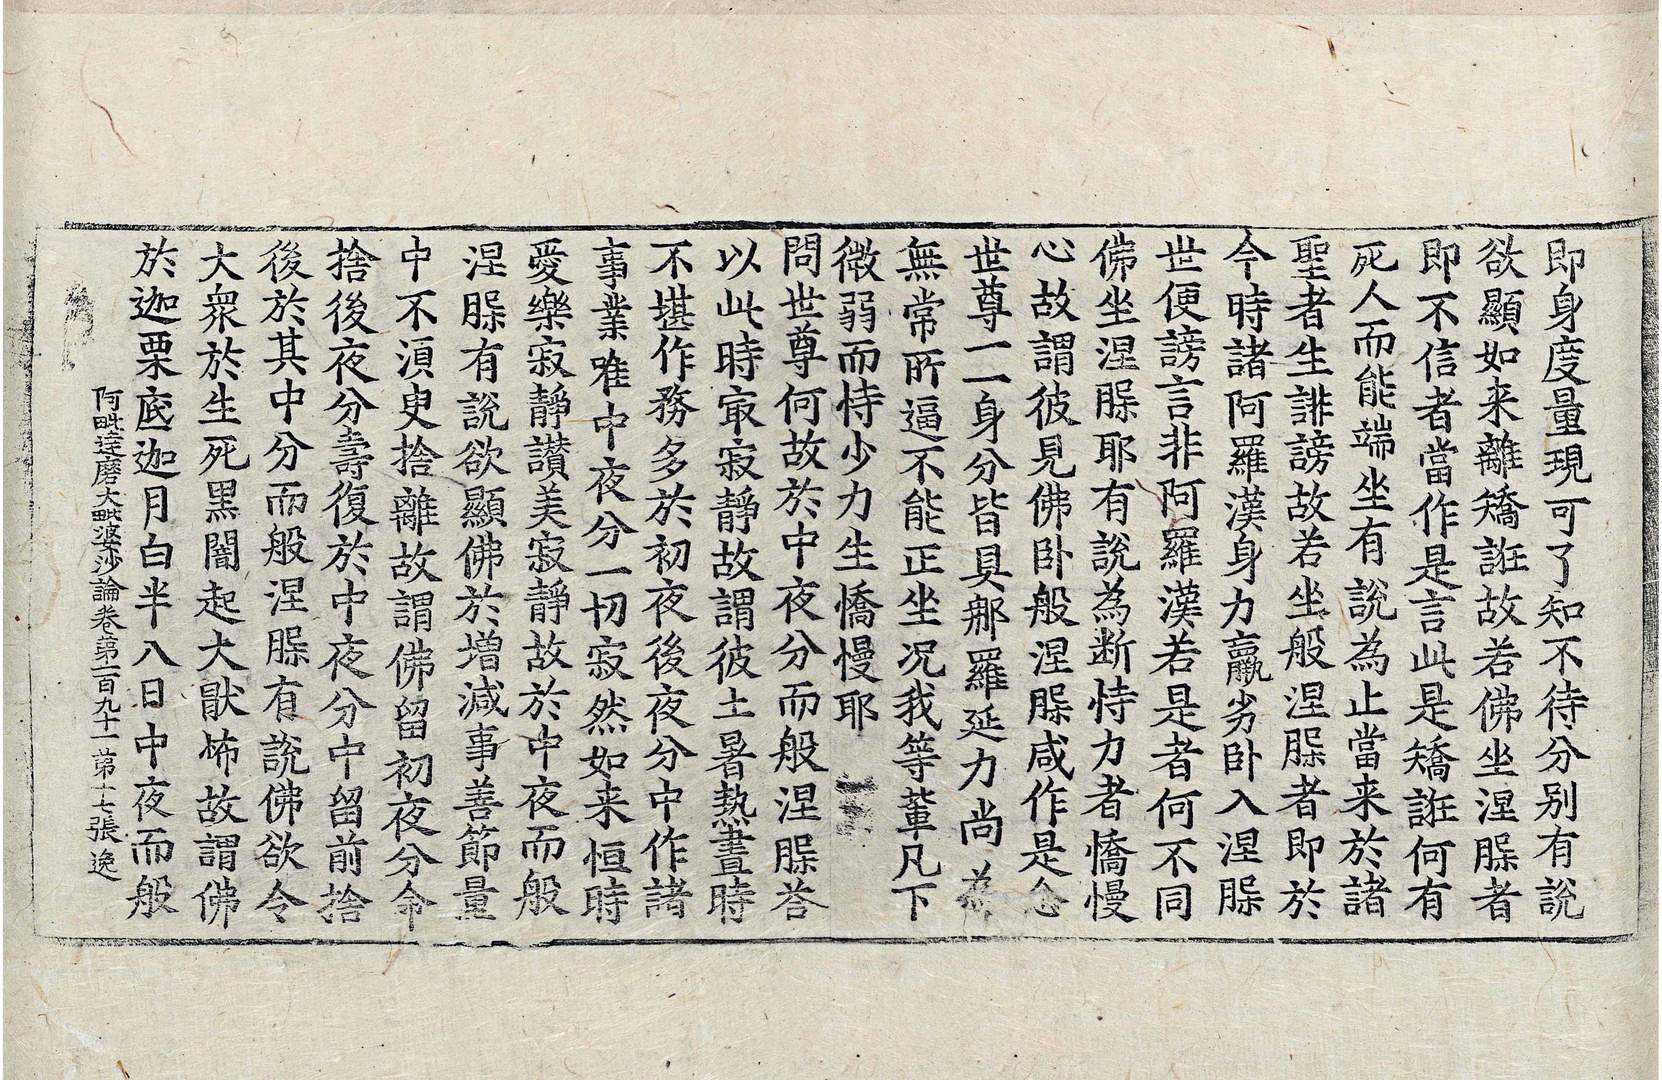 即身度量現可了知不待分別有說
欲顯如来離矯誑故若佛坐涅槃者
即不信者當作是言此是矯誑何有
死人而能端坐有說為止當来於諸
聖者生誹謗故若坐般涅槃者即於
今時諸阿羅漢身力羸劣卧入涅槃
世便謗言非阿羅漢若是者何不同
佛坐涅槃耶有說為斷恃力者憍慢
心故謂彼見佛卧般涅槃咸作是念
世尊一一身分皆具那羅延力尚為
無常所逼不能正坐况我等輩凡下
微弱而恃少力生憍慢耶
問世尊何故於中夜分而般涅槃荅
以此時㝡寂靜故謂彼土暑熱晝時
不堪作務多於初夜後夜分中作諸
事業唯中夜分一切寂然如来恒時
愛樂寂靜讃美寂靜故於中夜而般
涅槃有說欲顯佛於增減事善節量
中不湏臾捨離故謂佛留初夜分命
捨後夜分壽復於中夜分中留前捨
後於其中分而般涅槃有說佛欲令
大眾於生死黑闇起大猒怖故謂佛
於迦栗底迦月白半八日中夜而般
阿毗達磨大毗婆沙論卷第一百九十一 第十七張 逸